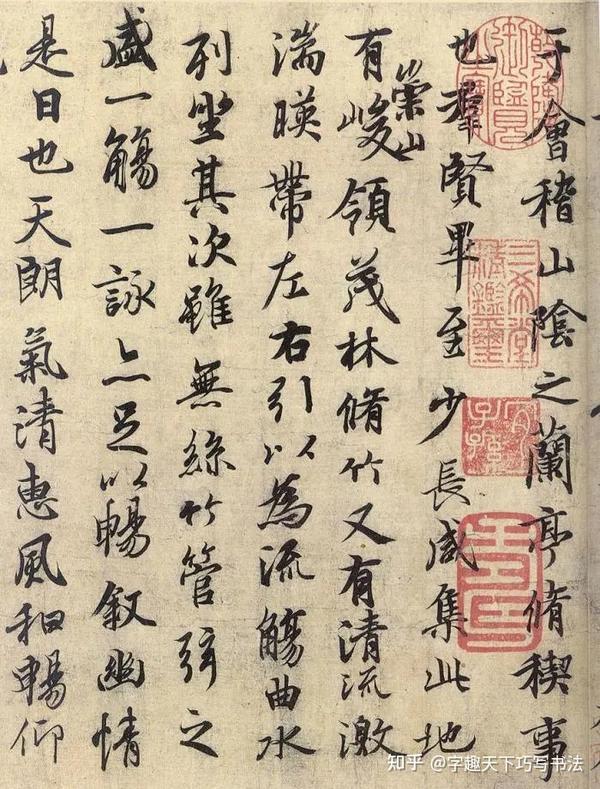 于會稽山陰之蘭亭脩稧事
也羣賢畢至少長咸集此地
有崇山峻領茂林脩竹又有清流激
湍暎帶左右引以為流觴曲水
列坐其次雖無絲竹管弦之
盛一觴一詠亦足以暢敘幽情
是日也天朗氣清惠風和暢仰
三希堂精鑑璽
知乎 @字趣天下巧写书法